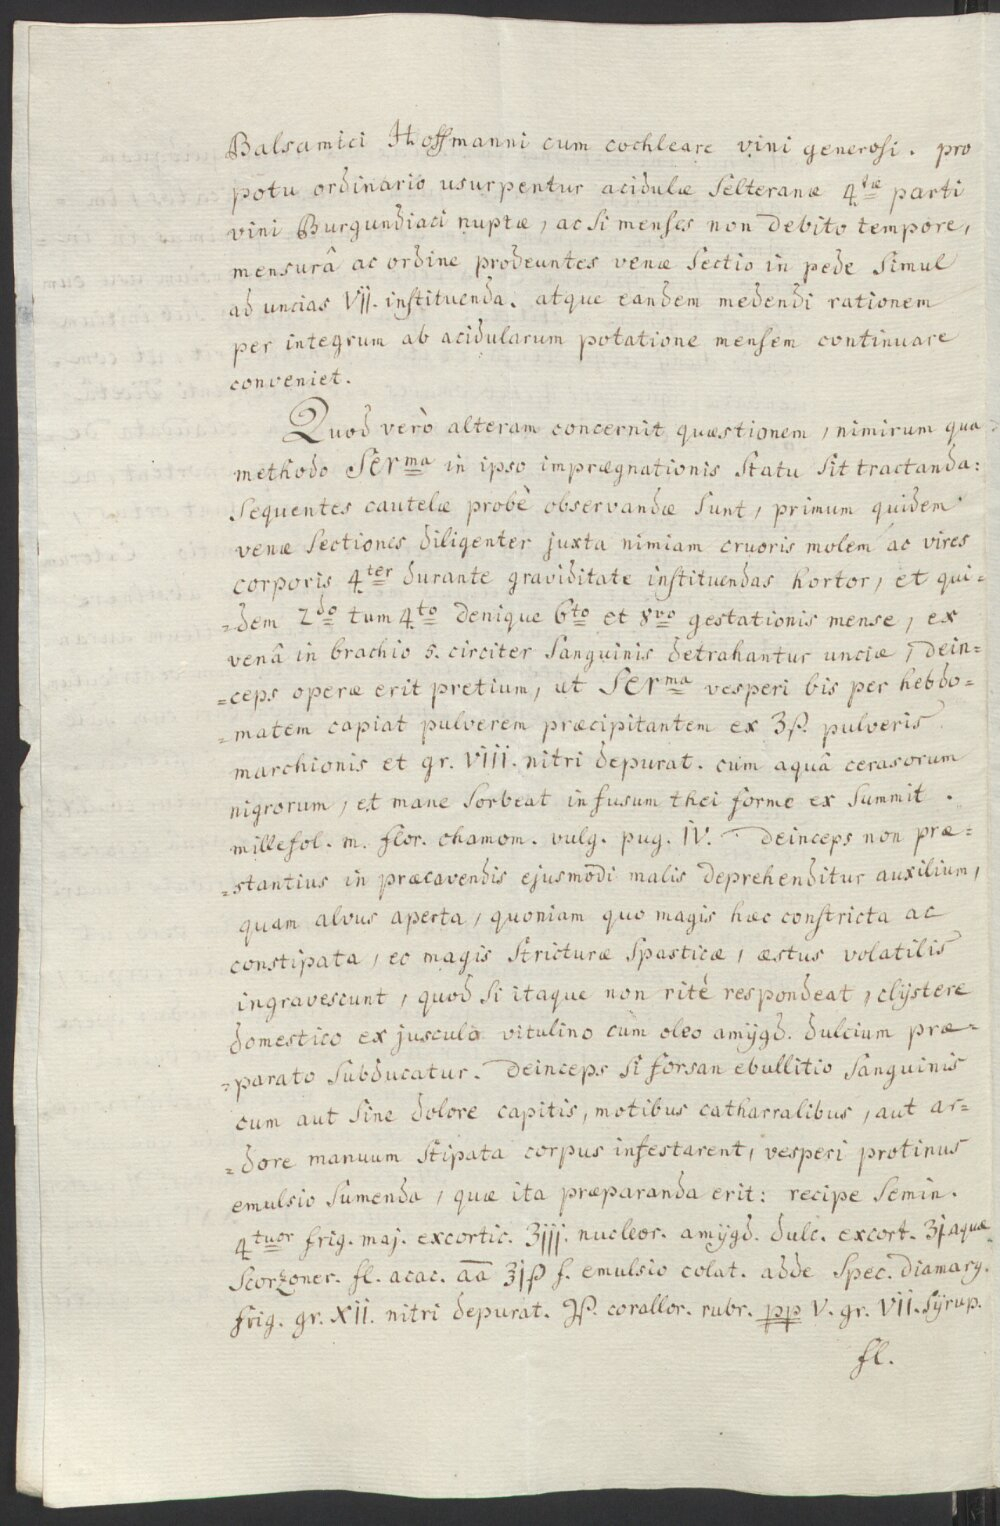 Balsamici Hoffmanni cum cochleare vini generosi. pro
potu ordinario usurpentur acidulæ Selteranæ 4tæ parti
vini Burgundiaci nuptæ, ac si menses non debito tempore,
mensurâ ac ordine prodeuntes venæ Sectio in pede Simul
ad uncias VII. instituenda. atque eandem medendi rationem
per integrum ab acidularum potatione mensem continuare
conveniet.
Quod verò alteram concernit quæstionem, nimirum qua
methodo Serma in ipso imprægnationis Statu Sit tractanda:
Sequentes cautelæ probè observandæ Sunt, primum quidem
venæ Sectiones diligenter juxta nimiam cruoris molem ac vires
corporis 4ter durante graviditate instituendas hortor, et qui=
=dem 2do tum 4to denique 6to et 8vo gestationis mense, ex
venâ in brachio 5. circiter Sanguinis detrahantur unciæ, dein=
=ceps operæ erit pretium, ut Serma vesperi bis per hebdo=
=matem capiat pulverem præcipitantem ex ʒß. pulveris
marchionis et gr. VIII. nitri depurat. cum aquâ cerasorum
nigrorum, et mane Sorbeat infusum thei forme ex Summit.
millefol. m. flor. chamom. vulg. pug. IV. Deinceps non præ=
=stantius in præcavendis ejusmodi malis deprehenditur auxilium,
quam alvus aperta, quoniam quo magis hæc constricta ac
constipata, eo magis Stricturæ Spasticæ, æstus volatilis
ingravescunt, quod Si itaque non ritè respondeat, clÿstere
domestico ex jusculo vitulino cum oleo amÿgd. dulcium præ=
=parato Subducatur. Deinceps Si forsan ebullitio Sanguinis
cum aut Sine dolore capitis, motibus catharralibus, aut ar=
=dore manuum Stipata corpus infestarent, vesperi protinus
emulsio Sumenda, quæ ita præparanda erit: recipe Semin.
4tuor frig. maj. excortic. ʒiij. nucleor. amÿgd. dulc. excort. ʒj aquæ
Scorzoner. fl. acac. āā ʒjß f. emulsio colat. adde Spec. diamarg.
frig. gr. XII. nitri depurat. ℈ß. corallor. rubr. pp V. gr. VII. Sÿrup.
fl.